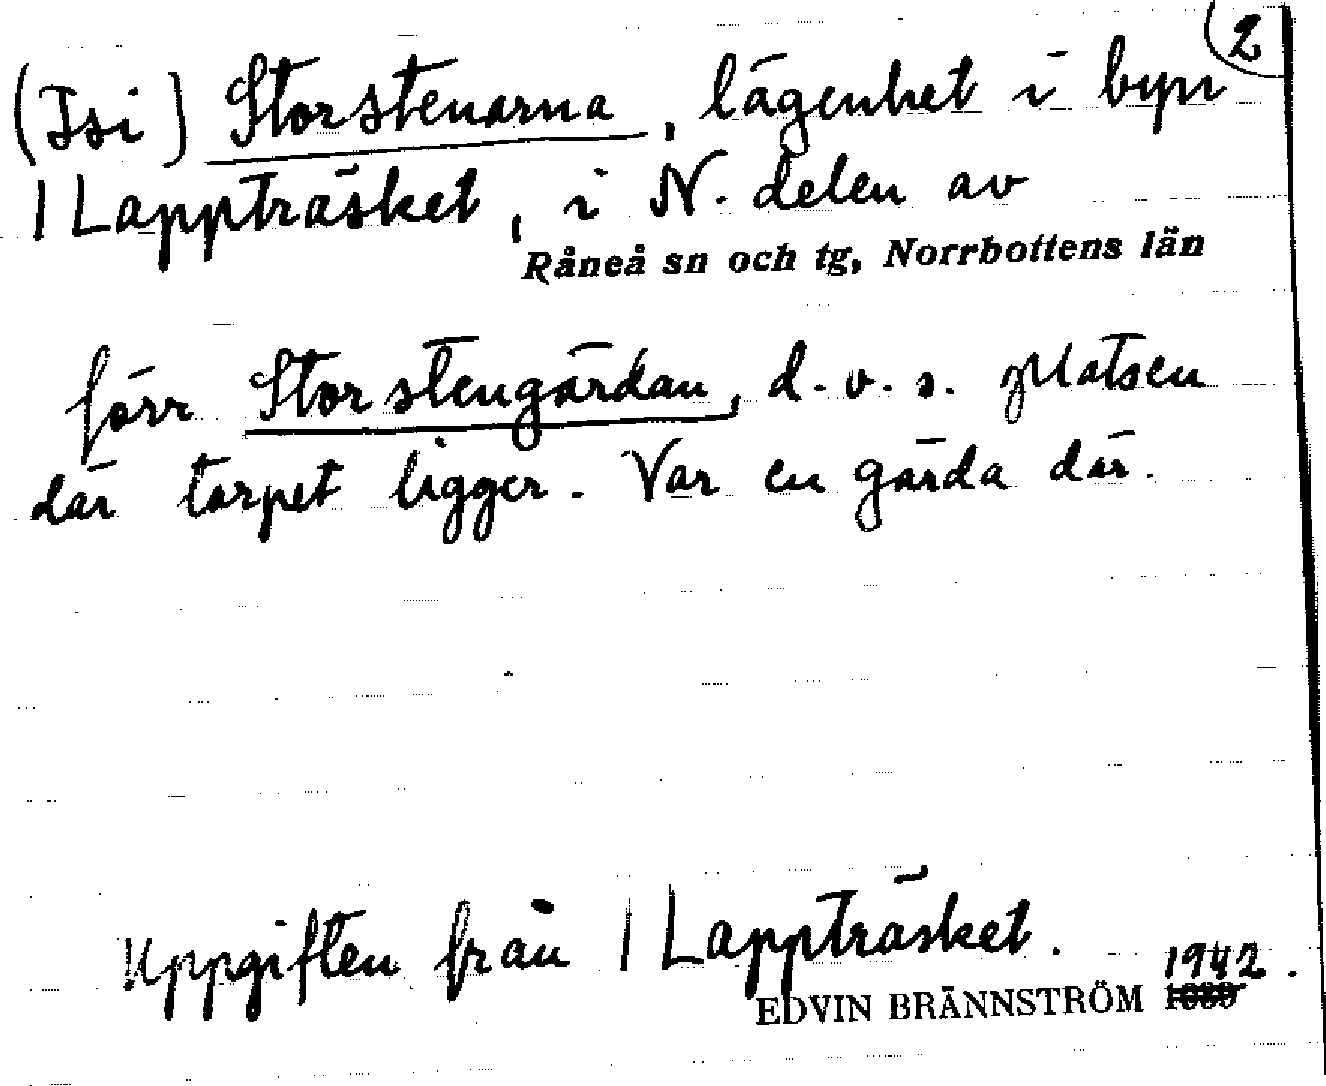 2
(Isi) Storstenarna, lägenhet i byn
| Lappträsket, i N. delen av
Råneå sn och tg, Norrbottens län
förr Storstengärdan, d.v.s. platsen
där torpet ligger. Var en gärda där.
Uppgiften från | Lappträsket.
1942.
EDVIN BRÄNNSTRÖM